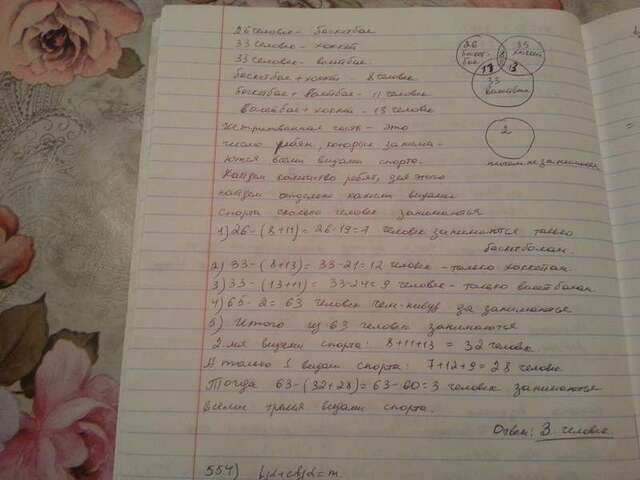 26 человек - баскетбол
33 человек - хоккей
33 человек - волейбол
баскетбол + хоккей 8 человек
баскетбол + волейбол - 11 человек
волейбол + хоккей - 13 человек
часть - это
число ребят, которые занима-
ются всеми видами спорта.
Найдём количество ребят, для этого
найдём отдельно каким видами
спорта сколько человек занимаются
1) 26-(8+11)= 26-19=7 человек занимаются только
баскетболом.
2) 33-(8+13)= 33-21=12 человек - только хоккеем.
3) 33-(13+11)= 33-24=9 человек - только волейболом
4) 65-2=63 человек чем-нибудь да занимаются
5) Итого из 63 человек занимаются
2-мя видами спорта: 8+11+13 = 32 человек.
А только 1 видом спорта: 7+12+9=28 человек
Тогда 63-(32+28)=63-60=3 человек занимаются
всеми тремя видами спорта.
Ответ: 3 человек
554)
26
баскет-
бол
33
хоккей
11
13
33
волейбол
2
ничем не занимаются